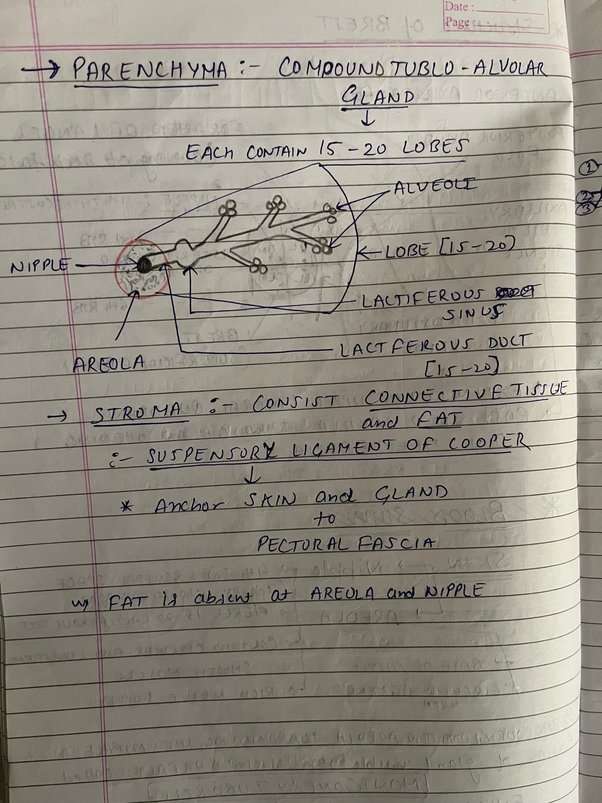 Date :
Page :
→ PARENCHYMA :- COMPOUND TUBLO - ALVOLAR
GLAND
↓
EACH CONTAIN 15-20 LOBES
ALVEOLI
NIPPLE
LOBE [15-20]
LACTIFEROUS
SINUS
LACTFEROUS DUCT
[15-20]
AREOLA
→ STROMA :- CONSIST CONNECTIVE TISSUE
and FAT
:- SUSPENSORY LIGAMENT OF COOPER
↓
* Anchor SKIN and GLAND
to
PECTORAL FASCIA
FAT is absent at AREOLA and NIPPLE
①
②
③